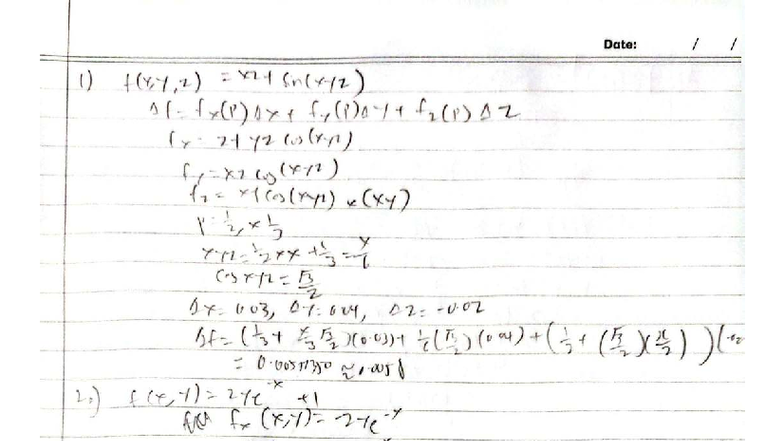 Date: / /
1) f(x,y,z) = xz + sin(xyz)
Δf = fx(P)Δx + fy(P)Δy + fz(P)Δz
fx = z + yz cos(xyz)
fy = xz cos(xyz)
fz = x + cos(xyz) × (xy)
P = 1/2, π, 1/3
xyz = 1/2 × π × 1/3 = π/6
cos xyz = √3/2
Δx = 0.03, Δy = 0.04, Δz = -0.02
Δf = (1/3 + π/3 √3/2)(0.03) + 1/6(√3/2)(0.04) + (1/2 + (√3/2)(π/2))(-0.02
= 0.0051
2.) f(x,y) = 2ye^-x + 1
fx(x,y) = -2ye^-x